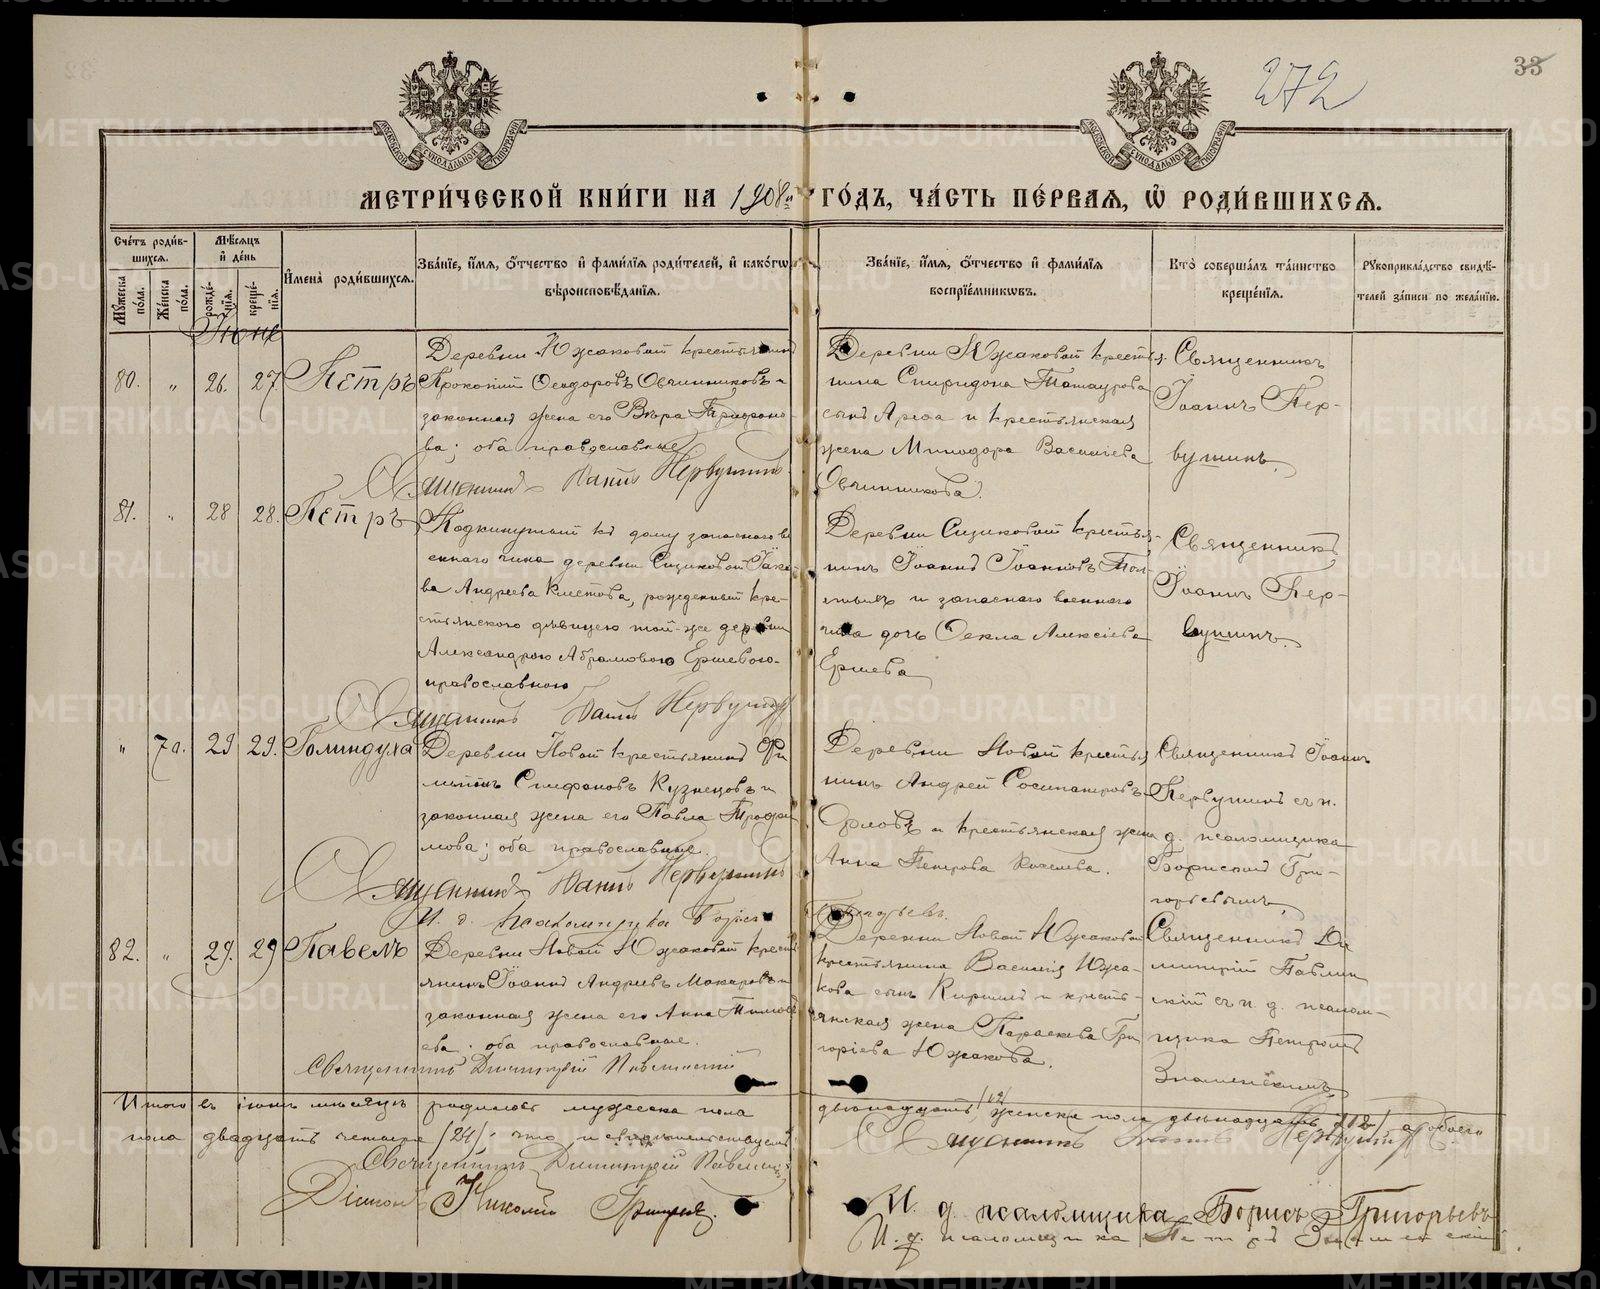 33
272
МОСКОВСКОЙ СѴНОДАЛЬНОЙ ТИПОГРАФІИ
МОСКОВСКОЙ СѴНОДАЛЬНОЙ ТИПОГРАФІИ
МЕТРИ́ЧЕСКОЙ КНИ́ГИ НА 1908й ГО́ДЪ, ЧА́СТЬ ПЕ́РВАѦ, Ѡ҆ РОДИ́ВШИХСѦ.
Сче́тъ роди́вшихсѧ.
Мꙋ́жеска по́ла.
Же́нска по́ла.
Мѣ́сѧцъ и҆ де́нь
рожде́нїѧ.
креще́нїѧ.
И҆мена̀ роди́вшихсѧ.
Зва́нїе, и҆́мѧ, ѻ҆́тчество и҆ фами́лїѧ роди́телей, и҆ како́гѡ вѣроисповѣ́данїѧ.
Зва́нїе, и҆́мѧ, ѻ҆́тчество и҆ фами́лїѧ воспрїе́мникѡвъ.
Кто̀ соверша́лъ та́инство креще́нїѧ.
Рꙋкоприкла́дство свидѣ́телей за́писи по жела́нїю.
Іюнь
80. " 26. 27. Петръ
Деревни Южаковой крестьянинъ
Прокопій Ѳеодоровъ Овчинниковъ и
законная жена его Вѣра Трифоно-
ва; оба православные
Священникъ Іоаннъ Первушинъ
Деревни Южаковой кресть-
нина Спиридона Татаурова
сынъ Арефа и крестьянская
жена Минодора Василіева
Овчинникова.
Священникъ
Іоаннъ Пер-
вушинъ.
81. " 28 28. Петръ
Подкинутый къ дому запаснаго во
еннаго чина деревни Сизиковой Іако-
ва Андреева Кистова, рожденный кре-
стьянскою дѣвицею той-же деревни
Александрою Абрамовою Ершевою-
православною
Священникъ Іоаннъ Первушинъ
Деревни Сизиковой крестья-
нинъ Іоаннъ Іоанновъ
и запаснаго военнаго
чина дочь Ѳекла Алексіева
Ершева
Священникъ
Іоаннъ Пер-
вушинъ.
" 7а. 29 29. Голиндуха
Деревни Новой крестьянинъ Фи
Стефановъ Кузнецовъ и
законная жена его Павла Трофи
мова; оба православные.
Священникъ Іоаннъ Первушинъ
И. д. псаломщика Борисъ Григорьевъ.
Деревни Новой крестья
нинъ Андрей Сосипатровъ
Орловъ и крестьянская жена
Анна Петрова
Священникъ Іоаннъ
Первушинъ съ и.
д. псаломщика
Борисомъ Гри-
горьевымъ
82. " 29. 29 Павелъ
Деревни Новой Южаковой крест
янинъ Іоаннъ Андреевъ Макаровъ и
законная жена его Анна Тимоѳ
ева. оба православные.
Священникъ Димитрій Павлинскій
Деревни Новой Южаковой
крестьянина Василія Южа-
кова сынъ Кириллъ и кресть-
янская жена Параскева Гри
горіева Южакова.
Священникъ Ди
митрій Павлин
скій съ и. д. псалом-
щика Петромъ
Знаменскимъ
Итого въ іюнѣ мѣсяцѣ родилось мужеска пола двѣнадцать /12/ женска пола двѣнадцать /12/ а обоего
пола двадцать четыре /24/; что и свидѣтельствуемъ Священникъ Іоаннъ Первушинъ
Священникъ Димитрій Павлинскій
Діаконъ Николай
И. д. псаломщика Борисъ Григорьевъ
И. д. псаломщика Петръ Знаменскій